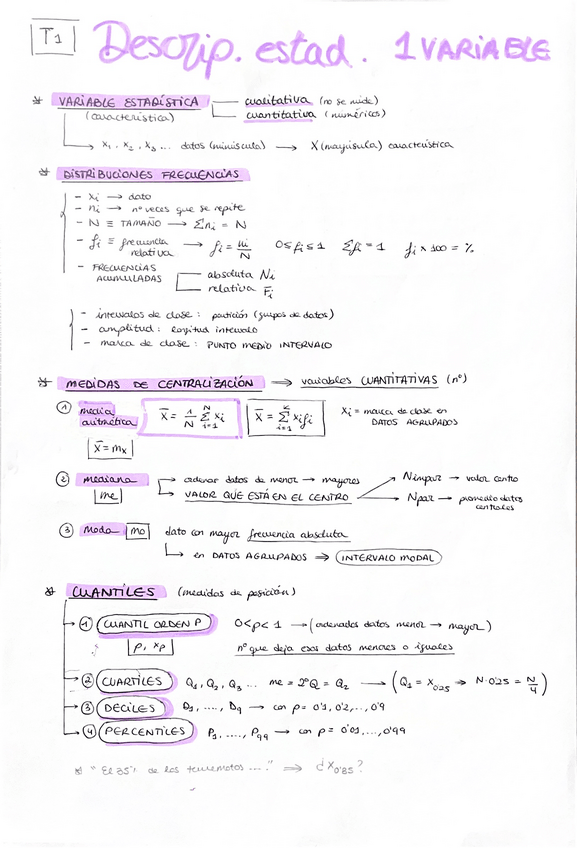 T1 Descrip. estad. 1 VARIABLE
* VARIABLE ESTADÍSTICA cualitativa (no se mide)
(característica) cuantitativa (numéricas)
x₁, x₂, x₃ ... datos (minúscula) → X (mayúscula) característica
* DISTRIBUCIONES FRECUENCIAS
- xi → dato
- ni → nº veces que se repite
- N ≡ TAMAÑO → Σni = N
- fi ≡ frecuencia relativa → fi = ni/N 0≤fi≤1 Σfi = 1 fi x 100 = %
- FRECUENCIAS ACUMULADAS absoluta Ni
relativa Fi
- intervalos de clase: partición (grupos de datos)
- amplitud: longitud intervalo
- marca de clase: PUNTO MEDIO INTERVALO
* MEDIDAS DE CENTRALIZACIÓN → variables CUANTITATIVAS (nº)
① media aritmética X̄ = 1/N Σ(i=1, N) xi X̄ = Σ(i=1, k) xifi xi = marca de clase en DATOS AGRUPADOS
X̄ = mx
② mediana → ordenar datos de menor → mayores N impar → valor centro
me → VALOR QUE ESTÁ EN EL CENTRO N par → promedio datos centrales
③ Moda mo dato con mayor frecuencia absoluta
→ en DATOS AGRUPADOS ⇒ INTERVALO MODAL
* CUANTILES (medidas de posición)
① CUANTIL ORDEN P 0<p<1 → (ordenados datos menor → mayor)
p, xp nº que deja esos datos menores o iguales
② CUARTILES Q₁, Q₂, Q₃ ... me = 2ºQ = Q₂ → (Q₁ = x0'25 ⇒ N·0'25 = N/4)
③ DECILES D₁, ...., D₉ → con p = 0'1, 0'2, ..., 0'9
④ PERCENTILES P₁, ...., P₉₉ → con p = 0'01, ..., 0'99
* "El 35% de los terremotos ...." ⇒ ¿x0'85?